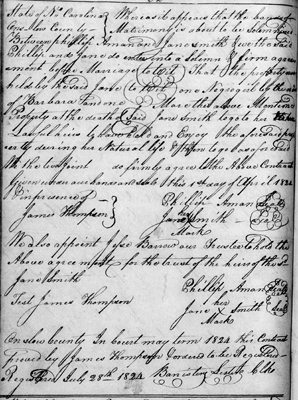 State of No. Carolina } Whereas it appears that the bonds of
Onslow County } Matrimony is about to be Solemnized
Between Phillip Aman and Jane Smith & we the Said
Phillip and Jane do enter into a Solemn & firm agree
ment of the Marriage to wit That the property
held by the Said Jane to wit one Negro girl by the name
of Barbara and one Mare the above Mentioned
Property at the death Said Jane Smith to go to her
Lawful heirs & to have & Enjoy the aforesaid prop
erty during her Natural life &
We the two Joint do firmly agree to the Above Contract
Given under our hands and Seals this 1st day of April 1824
In presence of } Phillip Aman Seal
James Thompson } Jane Smith Seal
Mark
We also appoint Jesse Barrow our Trustee to hold the
Above agreement for the benefit of the heirs of the Sd
Jane Smith
Phillip Aman Seal
Test James Thompson her
Jane X Smith Seal
Mark
Onslow County In Court may term 1824 this Contract
proved by James Thompson & ordered to be Registered
Registered July 28th 1824 Banister Lester Clk